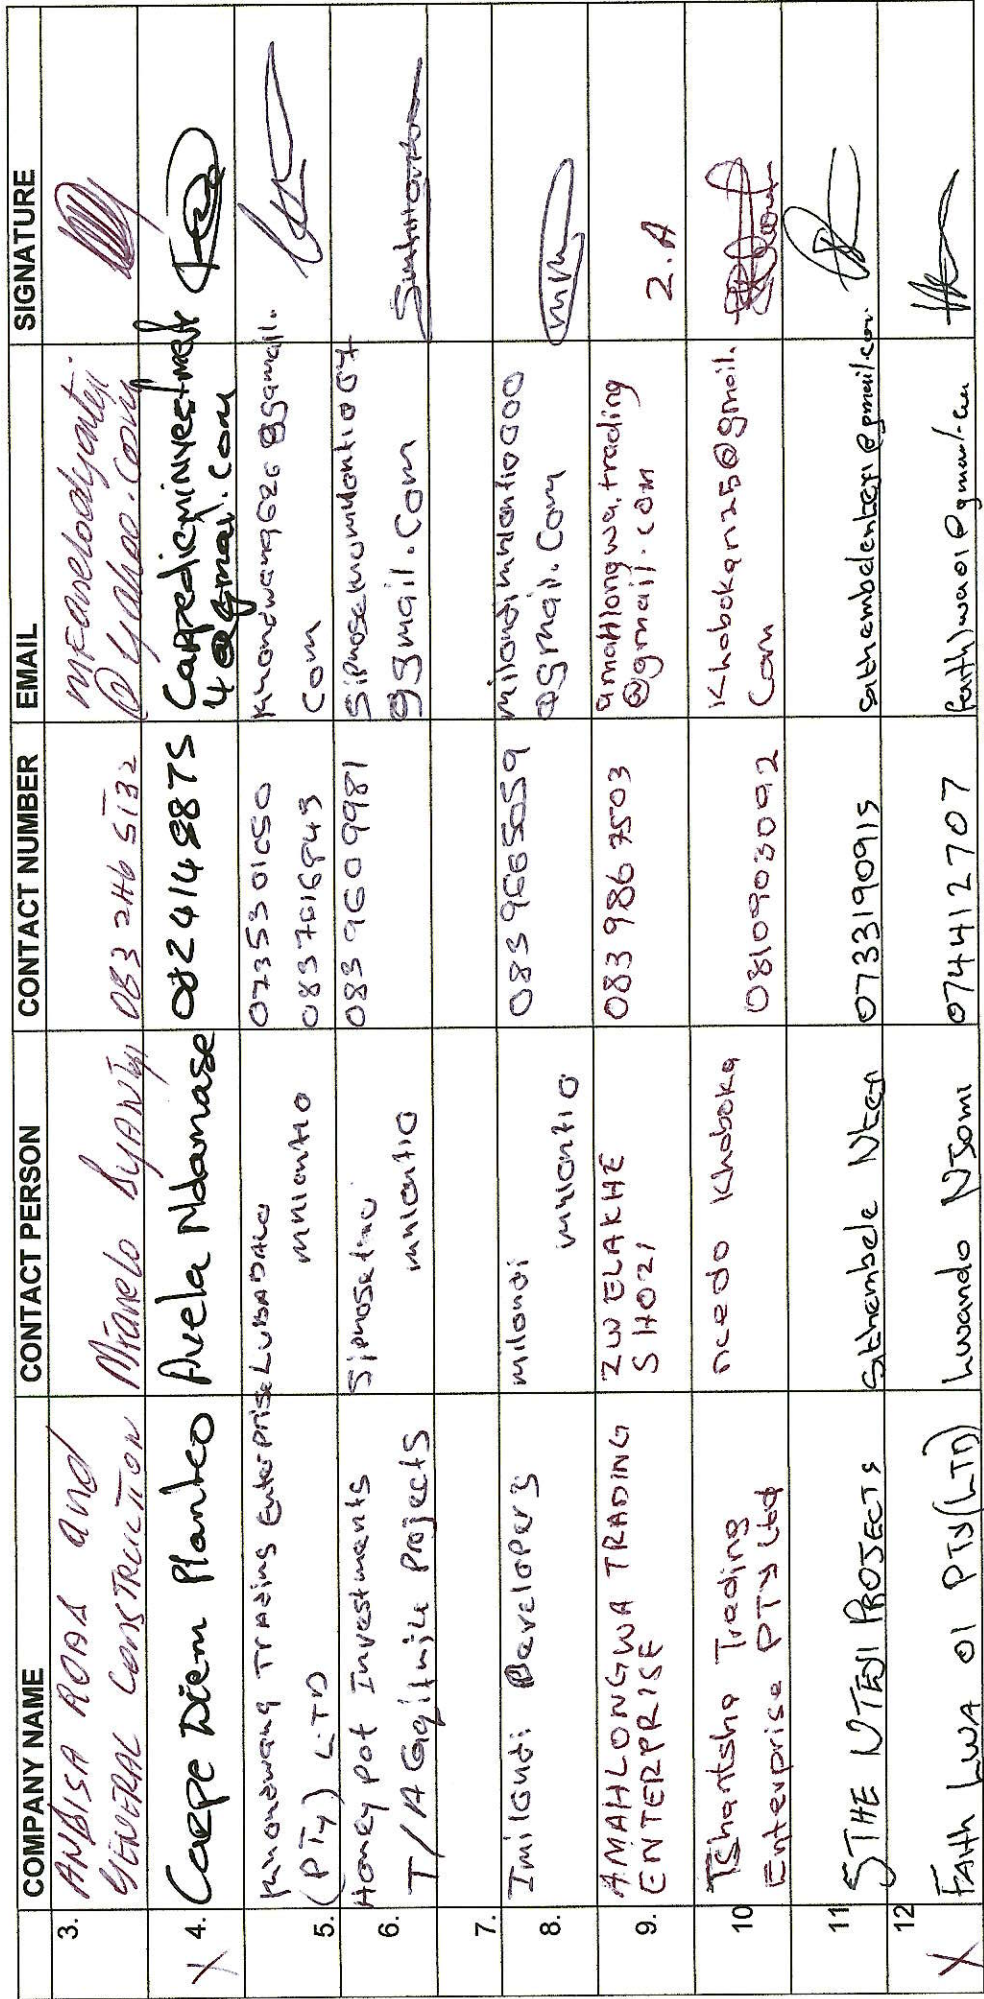 COMPANY NAME CONTACT PERSON CONTACT NUMBER EMAIL SIGNATURE
3. ANDISA ROAD and GENERAL CONSTRUCTION Mfanelo DYANTYI 083 246 5132 mfanelodyantyi @yahoo.com
X 4. Carpe Diem Plantco Avela Ndamase 0824148875 Carpedieminvestment 4@gmail.com
5. Trading Enterprise (PTy) LTD LUBABALO mhlontlo 0735301650
6. Honey pot Investments T/A Gqitimile Projects mhlontlo 083 960 9981 @gmail.com
7.
8. Imilondi Developers milondi mhlontlo 083 9665059 milondimhlontlo000 @gmail.com
9. AMAHLONGWA TRADING ENTERPRISE ZWELAKHE SHOZI 083 986 7503 amahlongwa.trading @gmail.com Z.A
10 Tshantsha Trading Enterprise PTY Ltd ncedo Khoboka 0810903092 Khobokan25@gmail. Com
11 STHE NTENJI PROJECTS Sithembele 0733190915
12 X FAITH LWA 01 PTY(LTD) Lwando Njomi 0744412707 faithlwa01@gmail.com